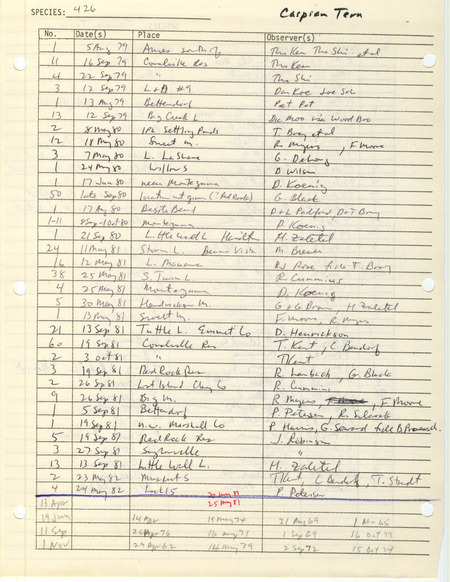 SPECIES: 426 Caspian Tern
No. Date(s) Place Observer(s)
1 5 Aug 79 Ames south of
11 16 Sep 79 Coralville Res Tho Ken
4 22 Sep 79 " Tho Shi
3 12 Sep 79 L&D #9 Dar Koe
1 13 Aug 79 Bettendorf Pet Pet
13 12 Sep 79 Big Creek L Dic Moo via Wood Bro
2 8 May 80 IPL Settling Ponds T. Bray et al
12 18 May 80 Sweet M. R. Myers, F Moore
3 7 May 80 L. LaShane G. DeLong
1 24 May 80 Willows D. Wilson
1 17 Jun 80 near Montezuma D. Koenig
50 late Sep 80 G. Black
1 17 Aug 80 DeSoto Bend D+L Padelford, D+T Bray
1-11 -Oct 80 Montezuma D. Koenig
1 21 Sep 80 Little Wall L Hamilton H. Zaletel
24 11 May 81 Storm L. Buena Vista M. Brewer
16 12 May 81 L. Manawa RJ Rose fide T. Bray
38 25 May 81 S. Twin L R. Cummins
4 25 May 81 Montezuma D. Koenig
5 30 May 81 Hendrickson M. H Zaletel
1 13 May 81 Sweet M. F. Moore, R. Myers
21 13 Sep 81 Tuttle L. Emmet Co D. Henrickson
60 19 Sep 81 Coralville Res T. Kent, C. Bendorf
2 3 Oct 81 " TKent
3 19 Sep 81 Red Rock Res R. Laubach, G. Black
2 26 Sep 81 Lost Island Clay Co R. Cummins
9 26 Sep 81 Big M. R Myers, F Moore
1 5 Sep 81 Bettendorf P. Petersen, R. Silcock
1 19 Sep 81 n.w. Marshall Co P Harris, G. Seward fide B Proescholdt
5 19 Sep 81 Red Rock Res J. Robinson
3 27 Sep 81 Saylorville "
13 13 Sep 81 Little Wall L. H. Zaletel
2 23 May 82 TKent, C Bendorf, T. Staudt
4 24 May 82 Lock 15 P. Petersen
25 May 81
13 Apr
19 Jun 14 Apr 19 May 74 21 Aug 69
11 Sep 26 Apr 76 1 Sep 69 16 Oct 77
1 Nov 29 Apr 62 2 Sep 72 15 Oct 74